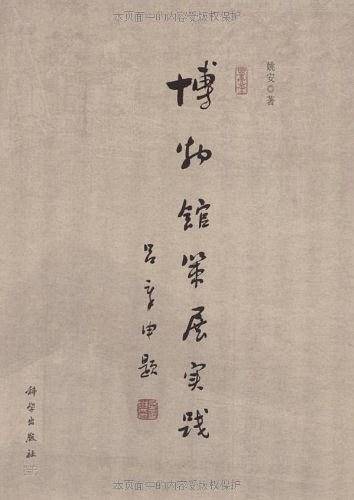 本页面中的内容受版权保护
姚安◎著
博物館策展实践
吕章申题
科学出版社
本页面中的内容受版权保护